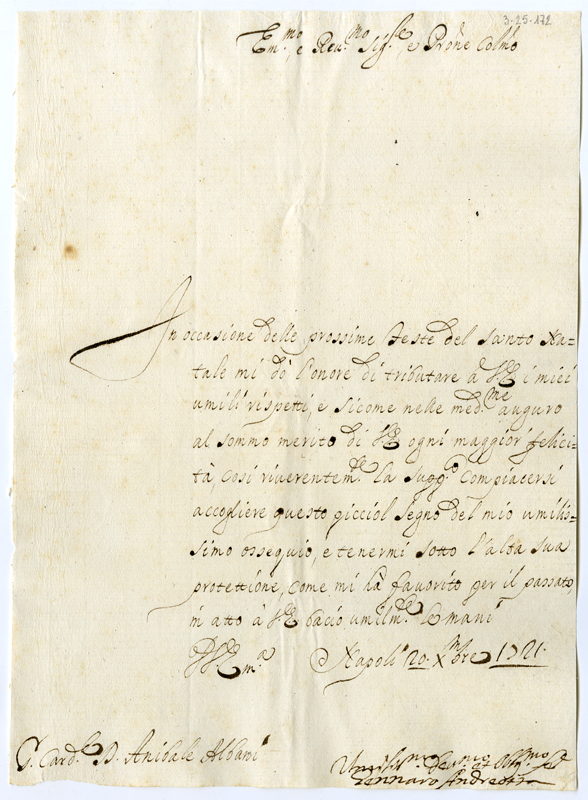 3-25-172
Em.mo e Reu.mo Sig.re, e Pròne Colmo
In occasione delle prossime Feste del Santo Na=
tale mi dò l'onore di tributare à V.E. i miei
umili rispetti, e sicome nelle med.me auguro
al sommo merito di V.E. ogni maggior felici=
tà, così riverentem.te la supp.co compiacersi
accogliere questo picciol segno del mio umilis=
simo ossequio, e tenermi sotto l'alta sua
protettione, come mi hà favorito per il passato,
in atto à V.E. bacio umilm.te le mani
D.V.Em.a Napoli 20. Xmbre 1721.
S. Card.le D. Anibale Albani
Umiliss.mo
Gennaro Andreassi